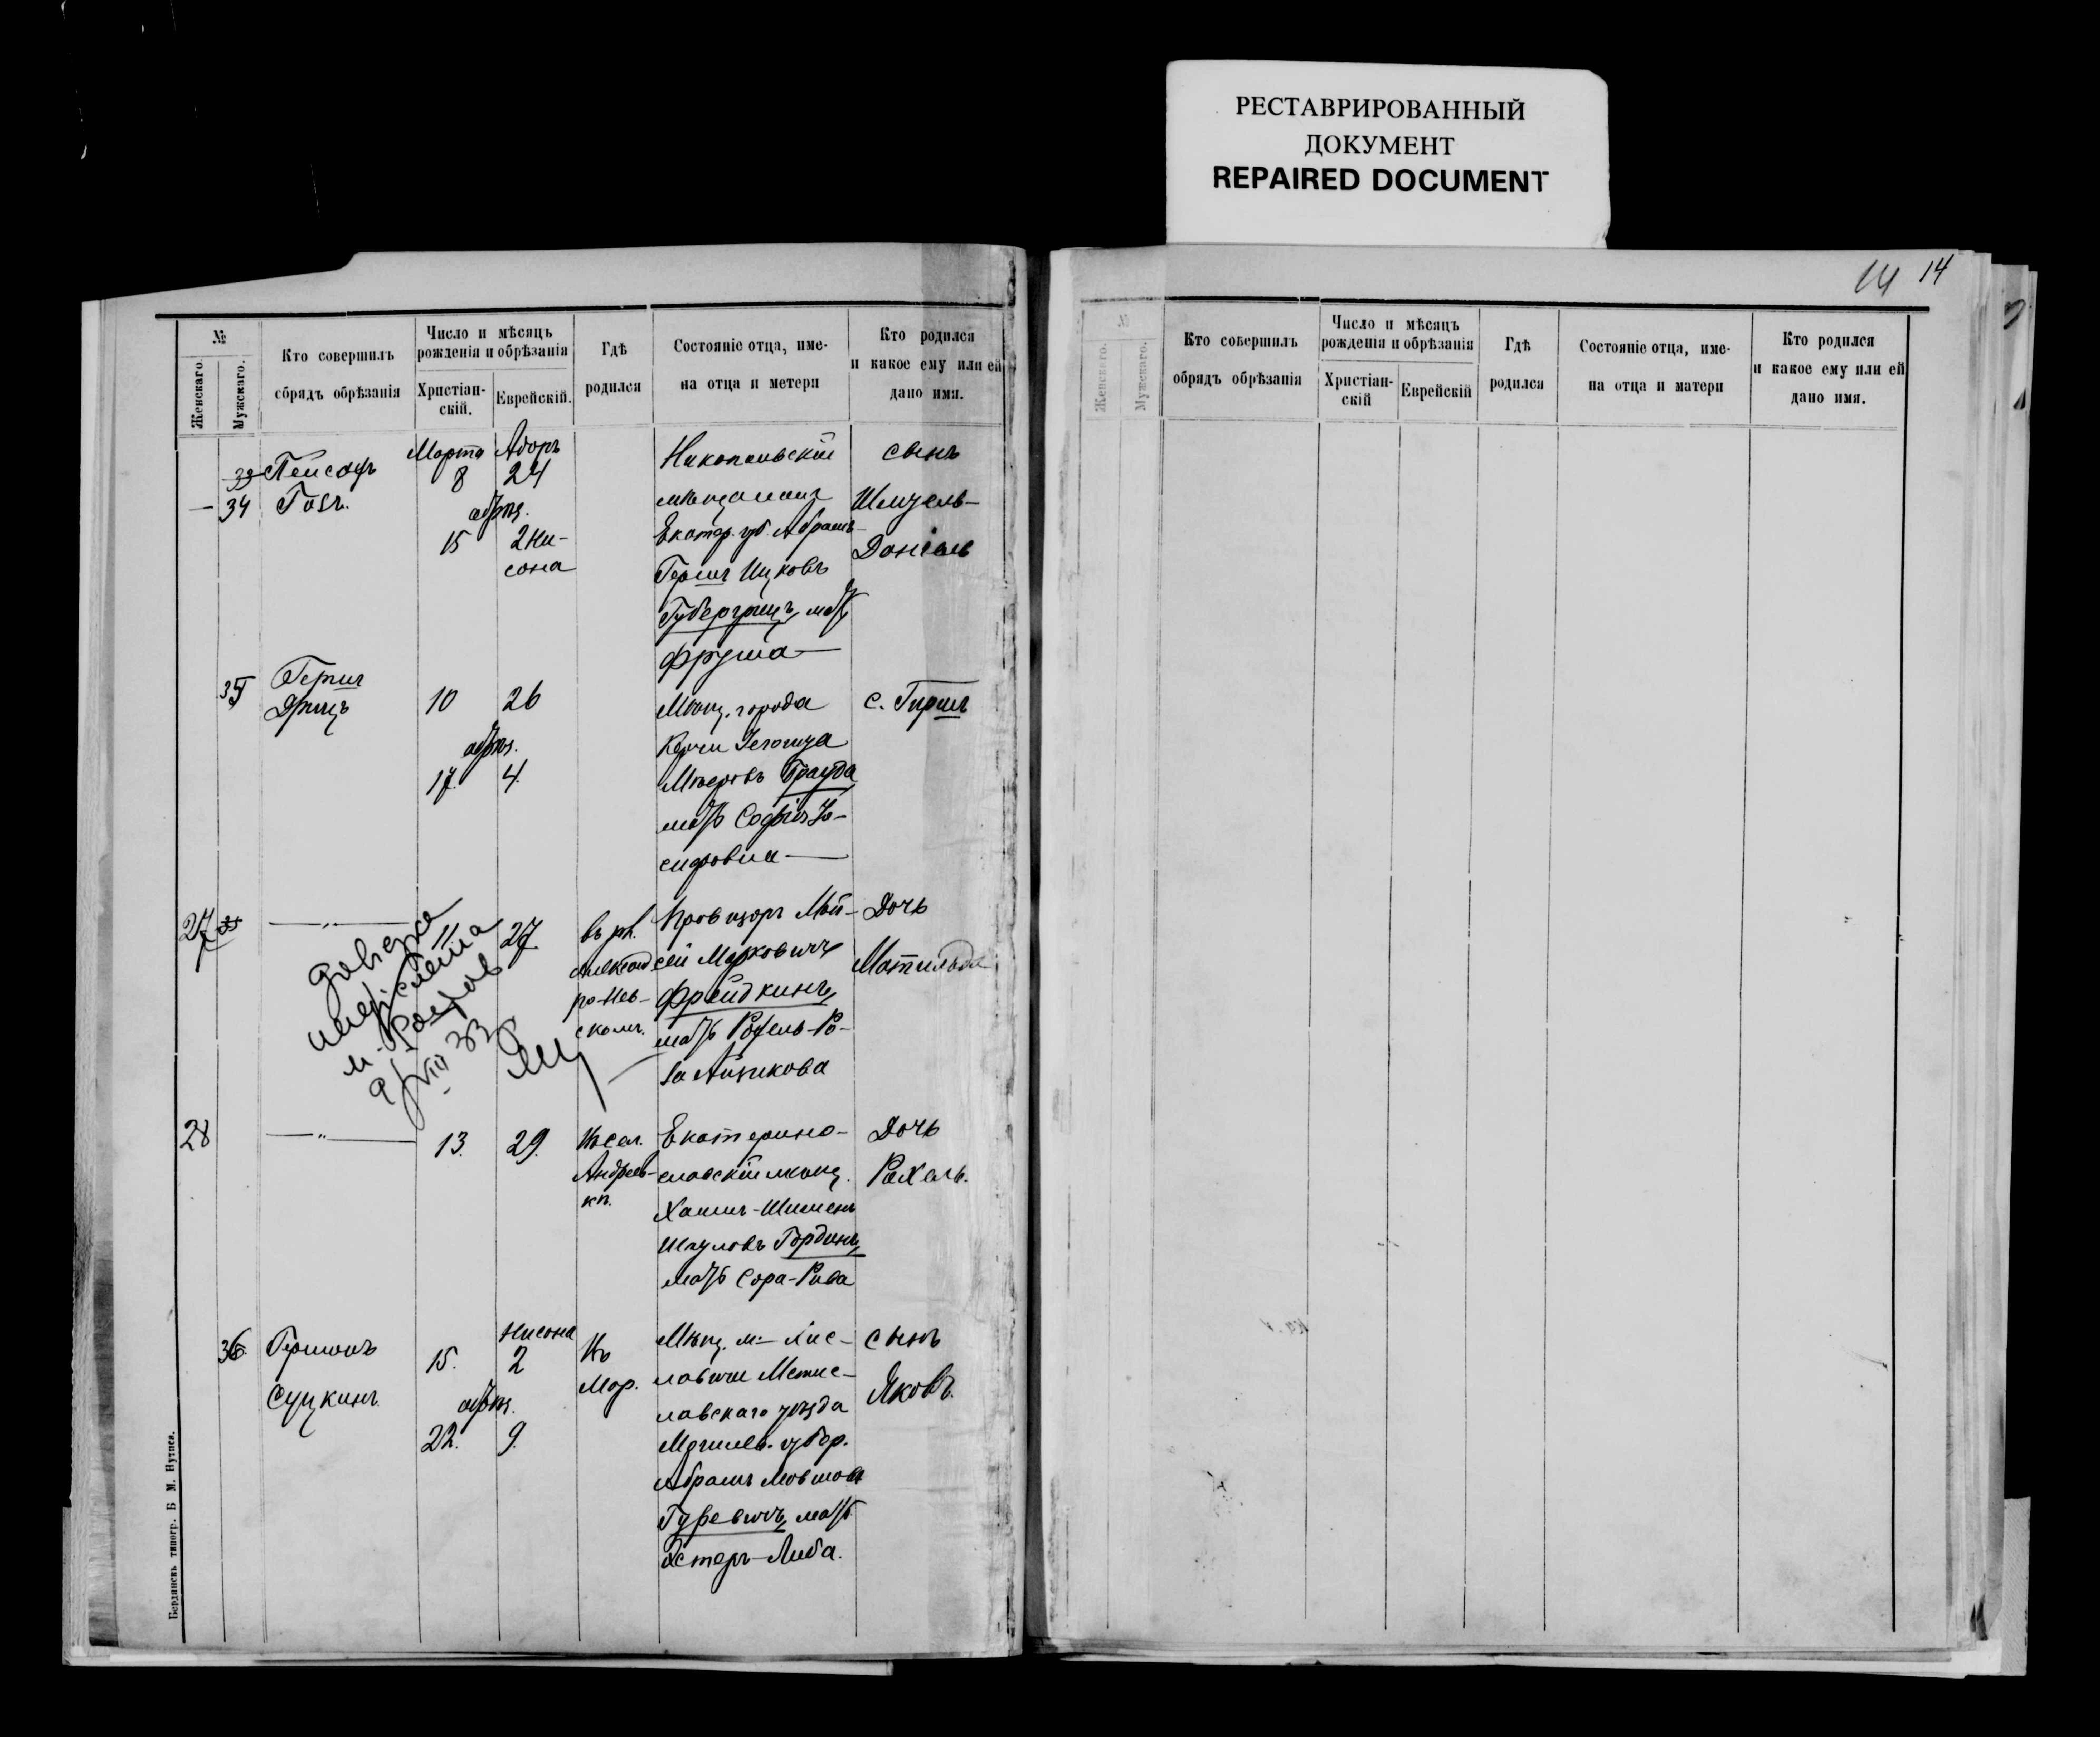 РЕСТАВРИРОВАННЫЙ
ДОКУМЕНТ
REPAIRED DOCUMENT
14 14
№
Женскаго.
Мужскаго.
Кто совершилъ
сбрядъ обрѣзанія
Число и мѣсяцъ
рожденія и обрѣзанія
Христіан-
скій.
Еврейскій.
Гдѣ
родился
Состояніе отца, име-
на отца и метери
Кто родился
и какое ему или ей
дано имя.
34
Пейсахъ
Гозъ.
Марта Адоръ
8 24
обрѣз.
15 2 Ни-
сона
Никопольскій
мѣщанинъ
Екатер. губ. Абрамъ-
Гершъ Ицковъ
Губергрицъ, мать
Фрума
сынъ
Шмуель-
Даніель
35
Гершъ
Дрицъ
10 26
обрѣз.
17. 4.
Мѣщ. города
Керчи
Мееровъ Брауда
мать Софія Іо-
сифовна
с. Гиршъ
27
11 27
въ р.
Александ
ро-Нев-
скомъ.
Провизоръ Мой-
сей Марковичъ
Фрейдкинъ,
мать Рохель-Ро-
за Айзикова
Дочь
Матильда
28
13. 29.
Въ сел.
Андреев-
кѣ.
Екатерино-
славскій мѣщ.
Хаимъ-Шименъ
Шауловъ Гординъ,
мать Сора-Рива
Дочь
Рахель.
36
Гершонъ
Суцкинъ.
Нисона
15. 2
обрѣз.
22. 9.
Въ
Мар.
Мѣщ. м. Хис-
лавичи Мстис-
лавскаго уѣзда
Могилев. губер.
Абрамъ Мовшовъ
Гуревичъ, мать
Эстеръ-Либа.
сынъ
Яковъ.
Бердянскъ типогр. Б М. Нутиса.
№
Женскаго.
Мужскаго.
Кто совершилъ
обрядъ обрѣзанія
Число и мѣсяцъ
рожденія и обрѣзанія
Христіан-
скій
Еврейскій
Гдѣ
родился
Состояніе отца, име-
на отца и матери
Кто родился
и какое ему или ей
дано имя.